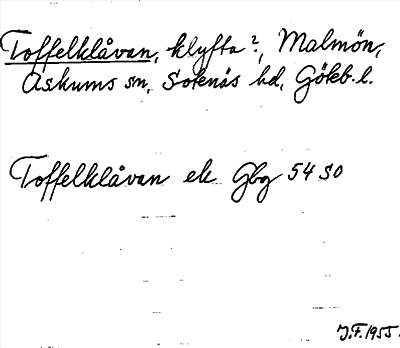 Toffelklåvan, klyfta?, Malmön,
Askums sn, Sotenäs hd, Göteb. l.
Toffelklåvan ek Gbg 54 SO
J.F. 1955.